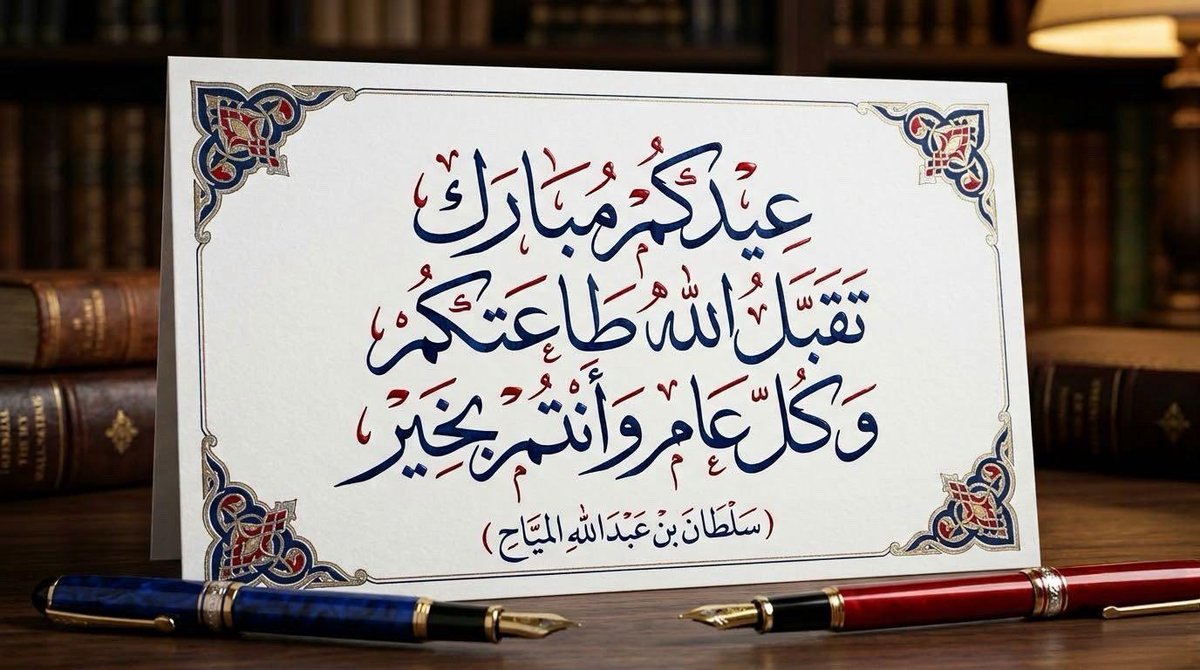 عِيدُكُمْ مُبَارَك
تَقَبَّلَ اللهُ طَاعَتَكُمْ
وَكُلّ عَام وَأَنْتُمْ بِخَيْر
(سَلْطَان بِنْ عَبْدَاللهِ المَيَّاحِ)